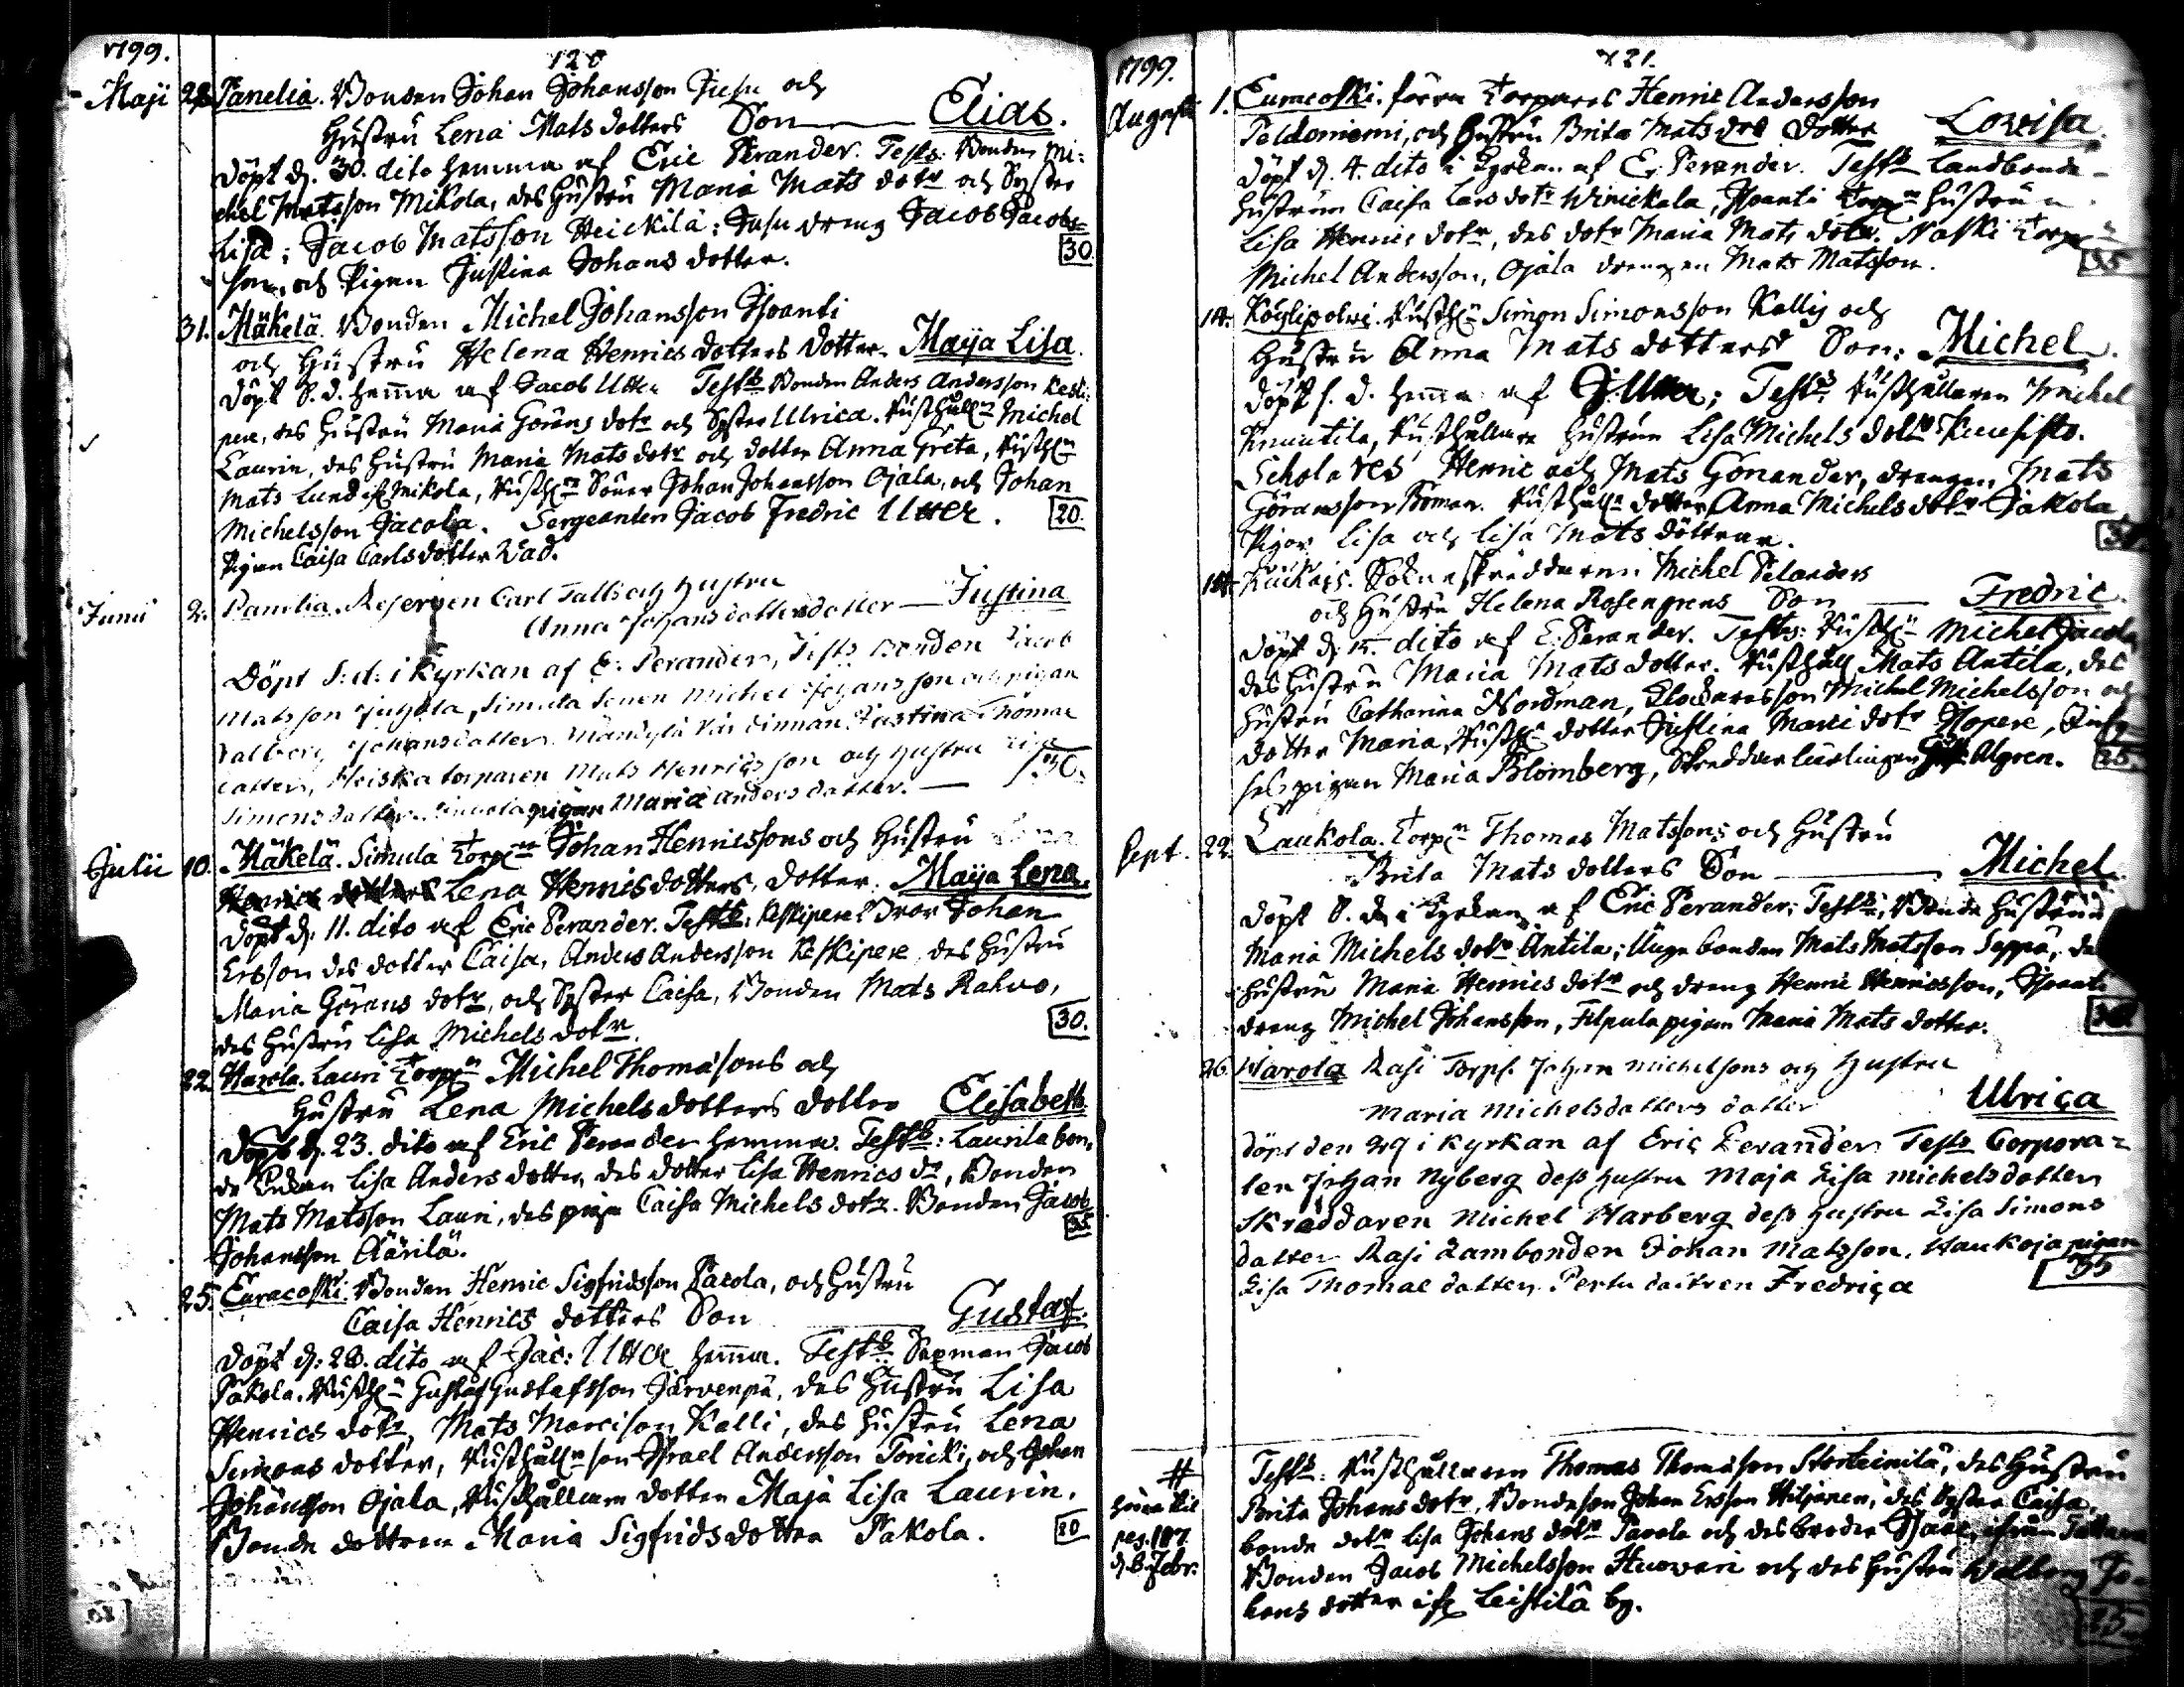 1799.
120
Maji 28. Panelia. Bonden Johan Johansson Jusu och
Hustru Lena Mats dotters Son Elias.
döpt d. 30. dito hemma af Eric Perander. Testb: Bonden Mi-
chel Matsson Mikola, des Hustru Maria Mats dotr och Syster
Lisa; Jacob Matsson Heickilä; Jusu dreng Jacob Jacobs-
son, och Pigan Justina Johans dotter. 30.
31. Mäkelä. Bonden Michel Johansson Isoanti
och Hustru Helena Henrics dotters dotter Maija Lisa.
döpt S. d. hemma af Jacob Utter Testb Bonden Anders Andersson Keski-
pere, des Hustru Maria Görans dotr och Syster Ulrica. Rusthålln Michel
Laurin, des Hustru Maria Mats dotr och dotter Anna Greta, Rusthn
Mats Lund Mikola, Rusthn Söner Johan Johansson Ojala, och Johan
Michelsson Jacola. Sergeanten Jacob Fredric Utter. 20.
Pigan Caisa Carlsdotter Vad.
Junii 2. Panelia. Reserven Carl Falls och Hustru
Anna Johansdotters dotter Justina
Döpt S: d: i Kyrkan af E: Perander, Testb Bonden Jacob
Matsson Juhola, Simula Sonen Michel Johansson och pigan
Valborg Johansdotter. Mandylä Justina Thomae
dotter, Heiska torparen Mats Henricsson och Hustru Lisa
Simonsdotter. Simula pigan Maria Anders dotter. 30.
Julii 10. Mäkelä. Simula Torpn Johan Henricssons och Hustru
Lena Henricsdotters, dotter. Maija Lena.
döpt d. 11. dito af Eric Perander. Testb: Keskipere Bror Johan
Ersson des dotter Caisa, Anders Andersson Keskipere, des Hustru
Maria Görans dotr, och Syster Caisa, Bonden Mats Rahvo,
des Hustru Lisa Michels dotr. 30.
22. Harola. Lauri Torpn Michel Thomäsons och
Hustru Lena Michelsdotters dotter Elisabeth.
döpt d. 23. dito af Eric Perander hemma. Testb: Laurila bon-
de Enkan Lisa Anders dotter, des dotter Lisa Henrics dr, Bonden
Mats Matsson Lauri, des piga Caisa Michels dotr. Bonden Jacob
Johansson Äärilä. 35
25. Euracoski. Bonden Henric Sigfridsson Pacola, och Hustru
Caisa Henrics dotters Son Gustaf.
döpt d: 28. dito af Jac: Utter hemma. Testb Sexman Jacob
Pakola. Rusthn Gustaf Gustafsson Järvenpä, des Hustru Lisa
Henrics dotr, Mats Marcison Kalli, des Hustru Lena
Simons dotter, Rusthålln son Israel Andersson Toricki, och Johan
Johansson Ojala, Rusthållare dotter Maja Lisa Laurin.
Bonde dottren Maria Sigfridsdotter Pakola. 20
1799.
121.
Augusti 1. Euracoski. förra Torparens Henric Andersson
Peldoniemi, och Hustru Brita Mats dos dotter Lovisa.
döpt d. 4. dito i Kyrkan af E. Perander. Testb Landbonde-
hustrun Caisa Lars dotr Winickala, Isoanti Torpn Hustrun
Lisa Henrics dotr, des dotr Maria Mats dotr. Naski Torpn
Michel Andersson, Ojala drengen Mats Matsson. 35
14. Köylipolvi. Rusthn Simon Simonsson Kallis och
Hustru Anna Mats dotters Son, Michel.
döpt s. d. hemma af J. Utter; Testb Rusthållaren Michel
Knuutila, Rusthållare hustrun Lisa Michels dotr Kuusisto.
Scholares Henric och Mats Gönander, drengen Mats
Göransson Roman. Rusthålln dotter Anna Michelsdotr Jakola
Pigor Lisa och Lisa Mats döttrar.
14. Kuckois. Sokneskräddaren Michel Selanders
och Hustru Helena Rosengrens Son Fredric.
döpt d. 15. dito af E: Perander. Testb: Rusthn Michel Jacola,
des Hustru Maria Mats dotter. Rusthåll Mats Antila, des
Hustru Catharina Nordman, Klockaresson Michel Michelsson och
dotter Maria, Rusthn dotter Justina Marci dotr Hopere,
pigan Maria Blomberg, Skreddar lärlingen Algren. 25.
Sept. 22. Laukola. Torpn Thomas Matssons och Hustru
Brita Mats dotters Son Michel
döpt S. d. i Kyrkan af Eric Perander; Testb: Bonde Hustrun
Maria Michels dotr Antila; Unga bonden Mats Matsson Seppä, des
Hustru Maria Henrics dotr och dreng Henric Henricsson, Isoanti
dreng Michel Johansson, Filpula pigan Maria Mats dotter.
26. Harola Rasi Torpn. Johan Michelsons och Hustru
Maria Michelsdotters dotter Ulrica
döpt den 29 i Kyrkan af Eric Perander Testb Corpora-
len Johan Nyberg dess hustru Maja Lisa Michelsdotter
Skräddaren Michel Harberg dess hustru Lisa Simons
dotter Rasi Lambonden Johan Matsson. Haukoja pigan
Lisa Thomae dotter. Pertu dottren Fredrica 35
# Testb: Rusthållaren Thomas Thomäson Storteinilä, des Hustru
Brita Johans dotr, Bondeson Johan Ersson Hiljanen, des Syster Caisa,
bonde dotr Lisa Johans dotr Pavola och des broder
Bonden Jacob Michelsson Huovari och des Hustru Walborg Jo-
hans dotter Leistilä by.
hörer til
pag. 107
d. 8. Febr.